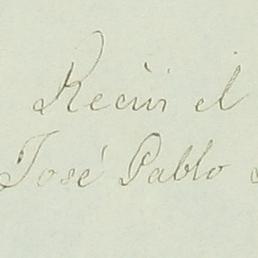 Recivi el
José Pablo